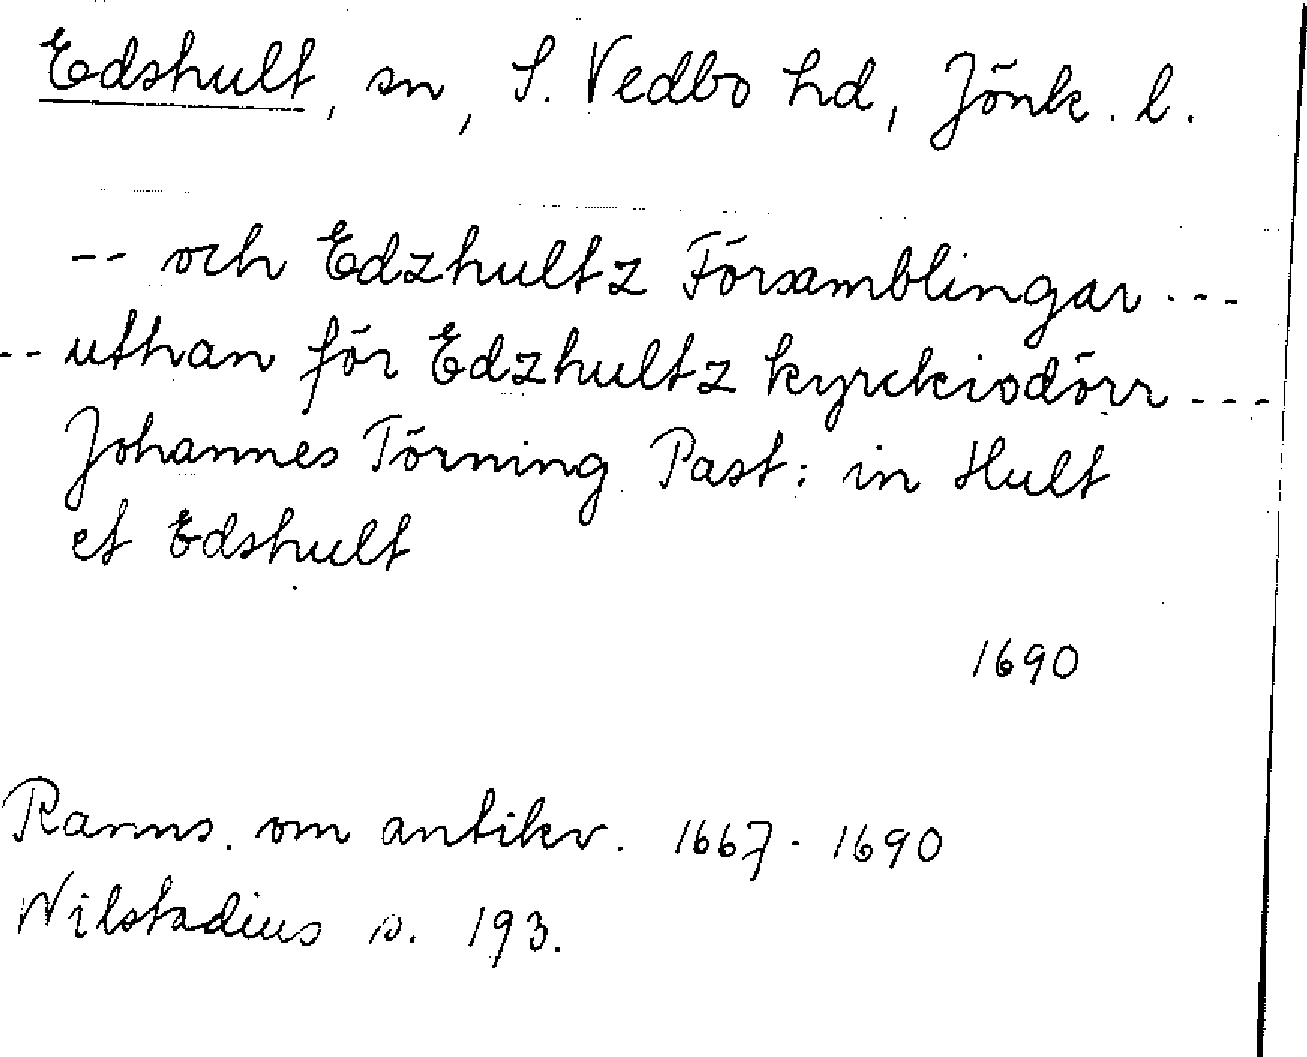 Edshult, sn, S. Vedbo hd, Jönk. l.
-- och Edzhultz Församblingar ---
-- uthan för Edzhultz kyrckiodörr ---
Johannes Törning Past: in Hult
et Edshult
1690
Ranns. om antikv. 1667-1690
Nilstadius s. 193.